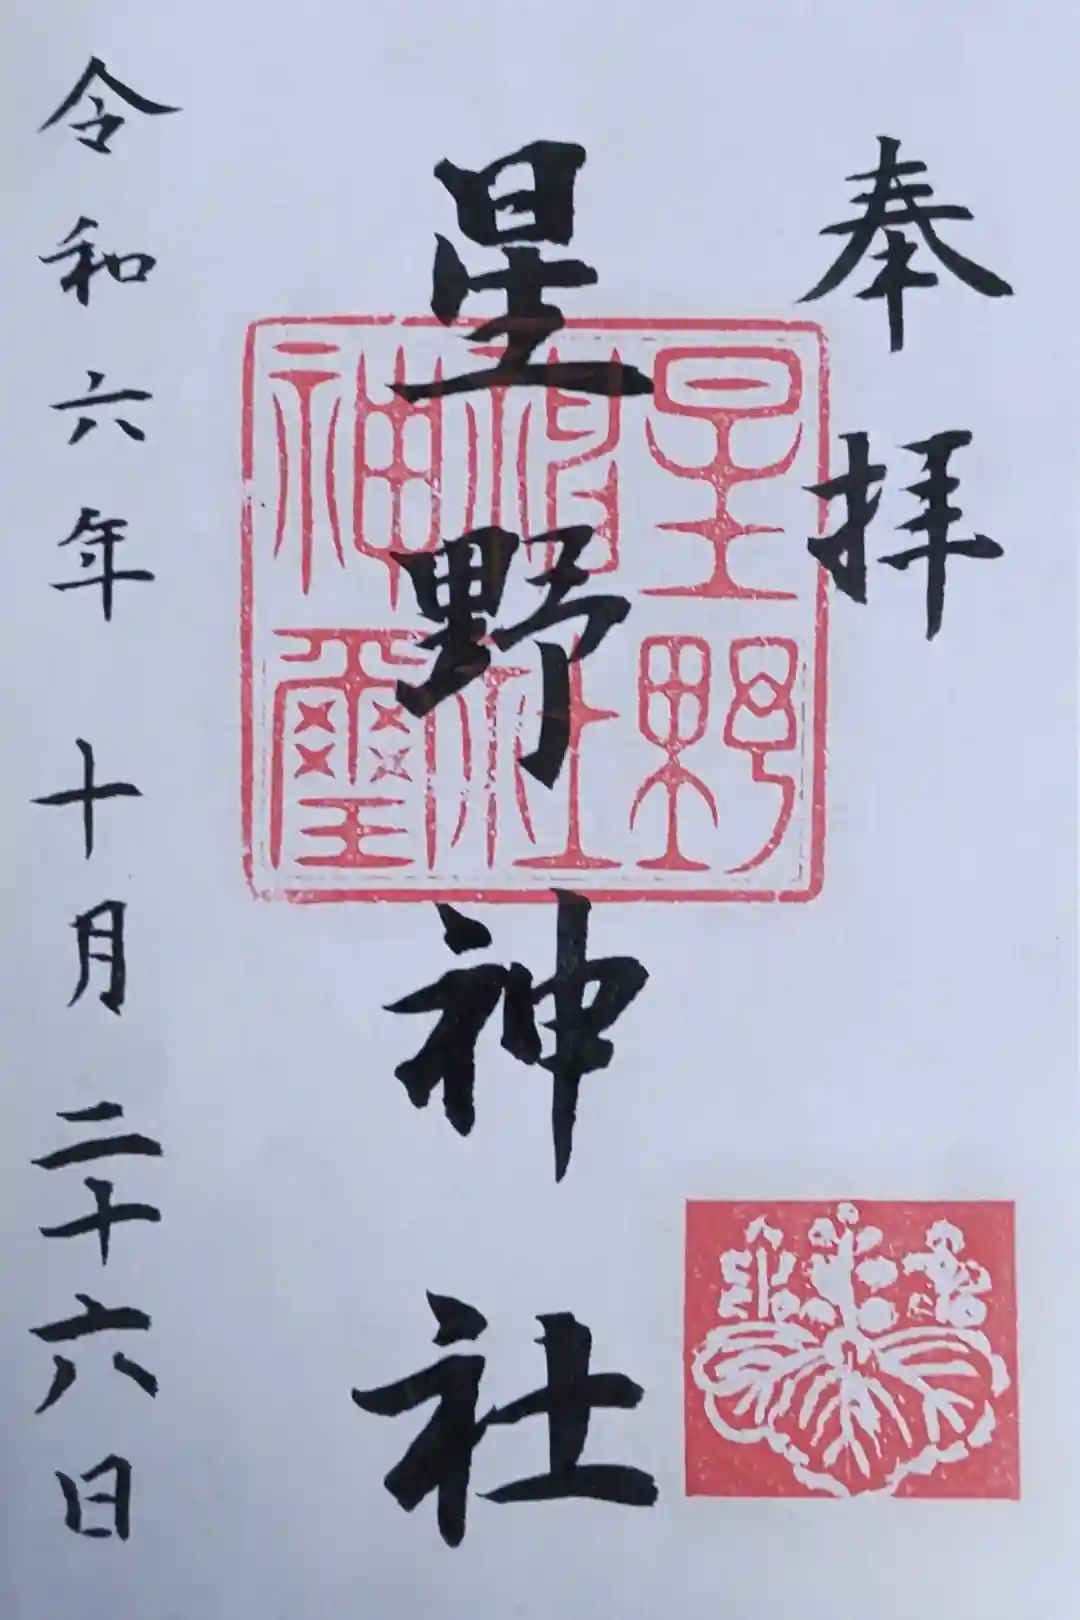 奉拝
星野神社
星野神社神璽
令和六年 十月二十六日